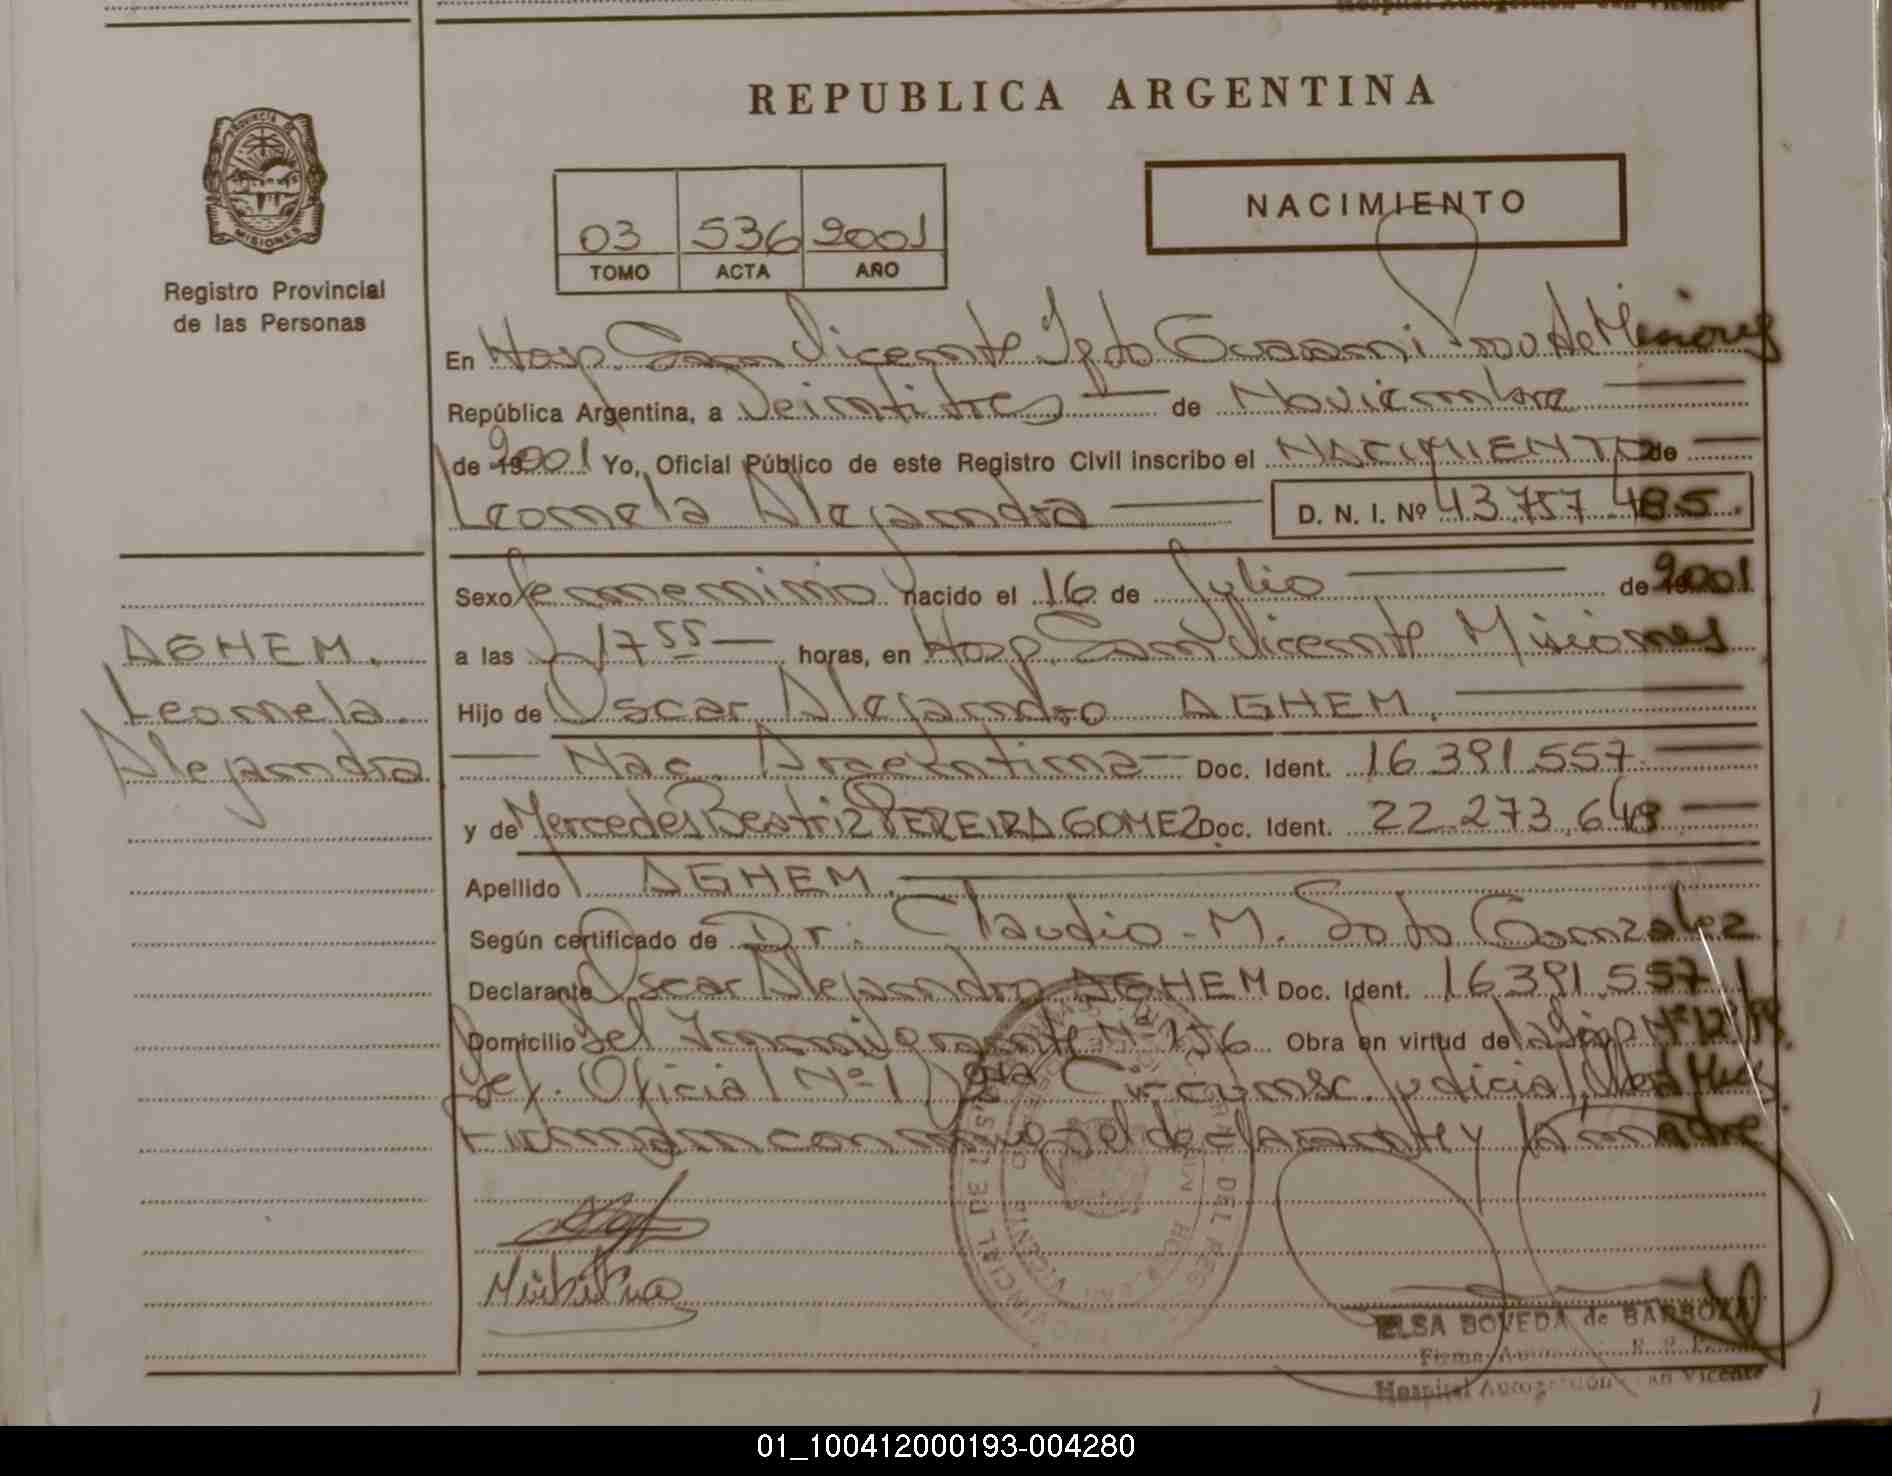 REPUBLICA ARGENTINA
PROVINCIA DE
MISIONES
Registro Provincial
de las Personas
03 536 2001
TOMO ACTA AÑO
NACIMIENTO
En Hosp. San Vicente Dpto Guarani Prov de Misiones
República Argentina, a Veintitres de Noviembre
de 2001 Yo, Oficial Público de este Registro Civil inscribo el NACIMIENTO de
Leonela Alejandra D. N. I. Nº 43.757.485.
Sexo femenino nacido el 16 de Julio de 2001
a las 17 55 horas, en Hosp. San Vicente Misiones
Hijo de Oscar Alejandro AGHEM.
Nac. Argentina Doc. Ident. 16.391.557
y de Mercedes Beatriz PEREIRA GOMEZ Doc. Ident. 22.273.649
Apellido AGHEM.
Según certificado de Dr. Claudio M. Soto Gonzalez
Declarante Oscar Alejandro AGHEM Doc. Ident. 16.391.557
Domicilio Del Inmigrante Nº 156 Obra en virtud de la Disp Nº 12/99
Def. Oficial Nº 1 Circunsc. Judicial
Firman conmigo el declarante y la madre
AGHEM.
Leonela
Alejandra
ELSA BOVEDA de BARBOZA
Hospital Autogestión San Vicente
01_100412000193-004280